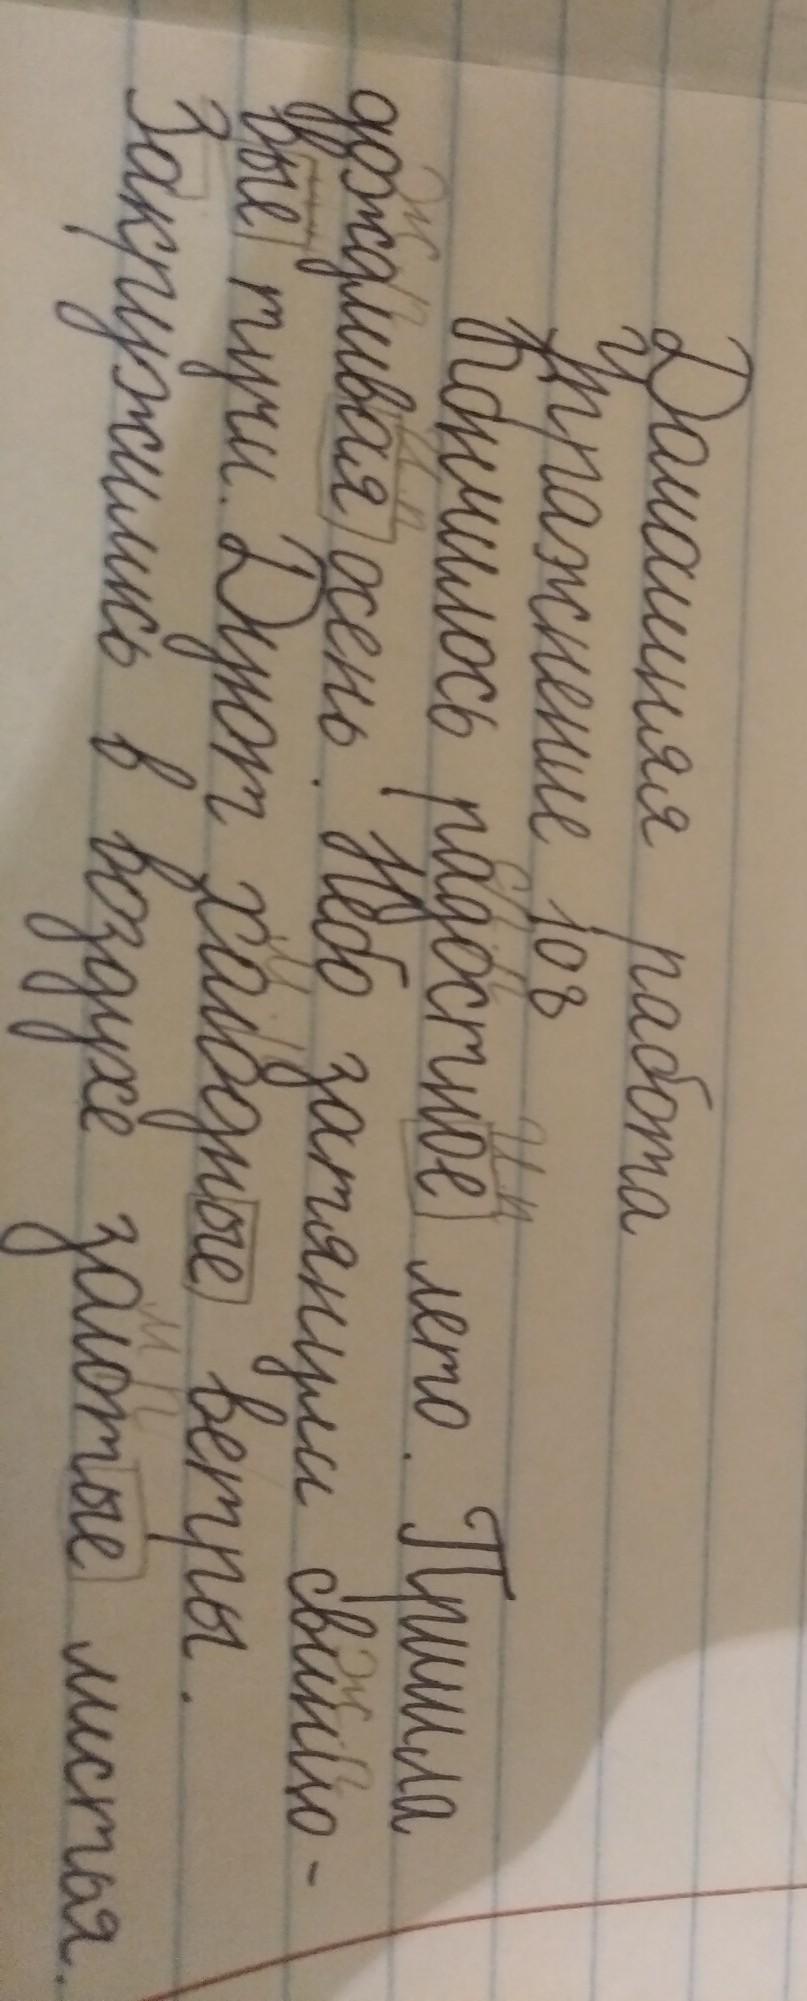 Дамашняя работа
Упражнение 108
Кончилось радостное лето. Пришла
дождливая осень. Небо затянули свинцо-
вые тучи. Дуют халодные ветры.
Закружились в воздухе залотые листья.